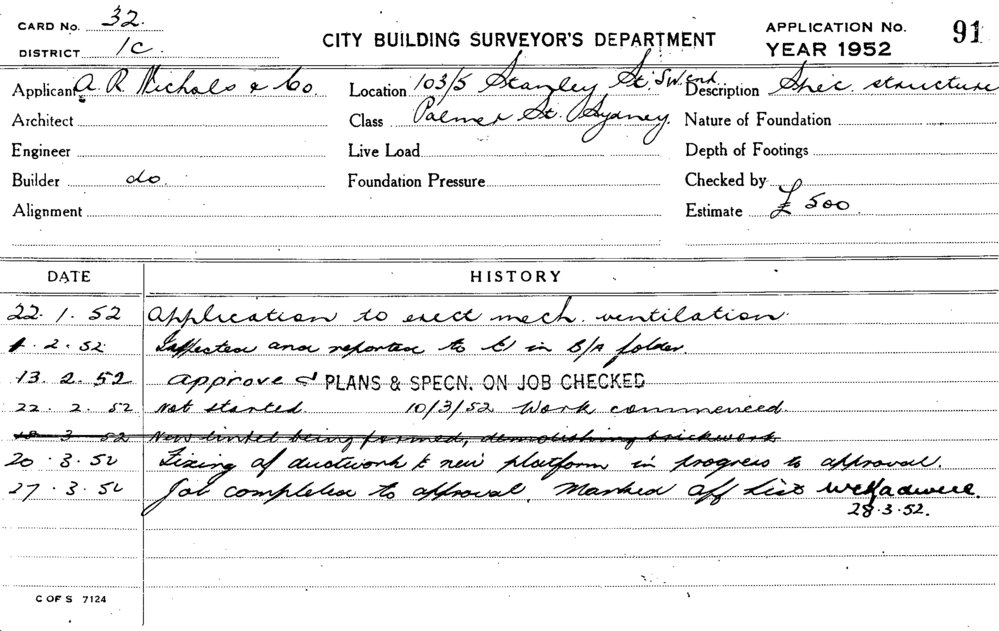 CARD No. 32.
DISTRICT 1C.
CITY BUILDING SURVEYOR'S DEPARTMENT
APPLICATION No. 91
YEAR 1952
Applicant A. R. Nichols & Co. Location 103/5 Stanley St. Description Spec. structure
Architect Class Palmer St. Sydney. Nature of Foundation
Engineer Live Load Depth of Footings
Builder do. Foundation Pressure Checked by
Alignment Estimate £ 500.
DATE HISTORY
22. 1. 52 Application to erect mech. ventilation.
1. 2. 52 Inspected and reported to in B/A folder.
13. 2. 52 approved PLANS & SPECN. ON JOB CHECKED
22. 2. 52 Not started. 10/3/52 Work commenced.
18 3 52 New lintel being formed, demolishing brickwork
20. 3. 52 Fixing of ductwork & new platform in progress to approval.
27. 3. 52 Job completed to approval. Marked off List
28.3.52.
C OF S 7124